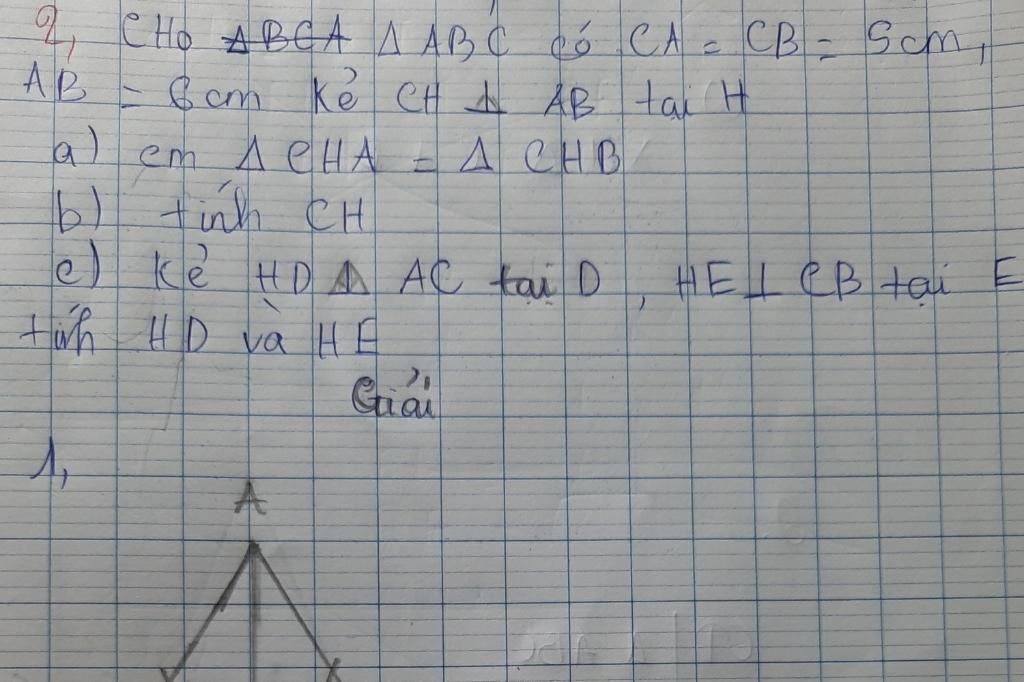 2, CHo ΔBCA Δ ABC có CA = CB = 5cm,
AB = 6cm Kẻ CH ⊥ AB tại H
a) cm Δ CHA = Δ CHB
b) tính CH
c) Kẻ HD ⊥ AC tại D, HE ⊥ CB tại E
tính HD và HE
Giải
1,
A